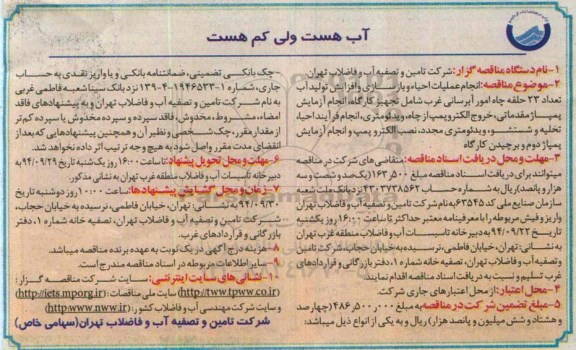 آب هست ولی کم هست
۱-نام دستگاه مناقصه گزار: شرکت تامین و تصفیه آب و فاضلاب تهران
۲-موضوع مناقصه: انجام عملیات احیاء و بازسازی و افزایش تولید آب
تعداد ۲۳ حلقه چاه امور آبرسانی غرب شامل تجهیز کارگاه، انجام آزمایش
پمپاژ مقدماتی، خروج الکتروپمپ از چاه، ویدئومتری، انجام فرآیند احیاء،
تخلیه و شستشو، ویدئومتری مجدد، نصب الکتروپمپ و انجام آزمایش
پمپاژ دوم و برچیدن کارگاه
۳-مهلت و محل دریافت اسناد مناقصه: متقاضی های شرکت در مناقصه
میتوانند برای دریافت اسناد مناقصه مبلغ ۱۶۳,۵۰۰ (یکصد و شصت و سه
هزار و پانصد) ریال به شماره حساب ۴۳۰۷۳۸۵۶۲ نزد بانک ملت شعبه
صنایع ملی کد ۶۳۵۴۵ به نام شرکت تامین و تصفیه آب و فاضلاب تهران
واریز و فیش مربوطه را با معرفینامه معتبر حداکثر تا ساعت ۱۶:۰۰ روز یکشنبه
تاریخ ۹۴/۰۹/۲۲ به دبیرخانه تاسیسات آب و فاضلاب منطقه غرب تهران
به نشانی: تهران، خیابان فاطمی، نرسیده به خیابان حجاب، شرکت تامین
و تصفیه آب و فاضلاب تهران، تصفیه خانه شماره ۱، دفتر بازرگانی و قراردادهای
غرب تسلیم و نسبت به دریافت اسناد مناقصه اقدام نمایند.
۴-محل اعتبار: از محل اعتبارهای جاری شرکت.
۵-مبلغ تضمین شرکت در مناقصه: به مبلغ ۴۸۶,۵۰۰,۰۰۰ (چهارصد
و هشتاد و شش میلیون و پانصد هزار) ریال و به یکی از انواع ذیل میباشد:
-چک بانکی تضمینی، ضمانتنامه بانکی و یا واریز نقدی به حساب
جاری، شماره ۱-۱۹۴۶۵۳۳-۴-۱۳۹ نزد بانک سینا شعبه فاطمی غربی
به نام شرکت تامین و تصفیه آب و فاضلاب تهران و به پیشنهادهای فاقد
امضاء، مشروط، مخدوش، فاقد سپرده و سپرده مخدوش یا سپرده کم تر
از مقدار مقرر، چک شخصی و نظیر آن و همچنین پیشنهادهایی که بعد از
انقضای مدت مقرر واصل شود به هیچ وجه ترتیب اثر داده نخواهد شد.
۶-مهلت و محل تحویل پیشنهاد: تا ساعت ۱۶:۰۰ روز یک شنبه تاریخ ۹۴/۰۹/۲۹ به
دبیرخانه تأسیسات آب و فاضلاب منطقه غرب تهران به نشانی مذکور.
۷-زمان و محل گشایش پیشنهادها: ساعت ۱۰:۰۰ روز دوشنبه تاریخ
۹۴/۰۹/۳۰ به نشانی: تهران، خیابان فاطمی، نرسیده به خیابان حجاب،
شرکت تامین و تصفیه آب و فاضلاب تهران، تصفیه خانه شماره ۱، دفتر
بازرگانی و قراردادهای غرب.
۸-هزینه درج آگهی در یک نوبت به عهده برنده مناقصه میباشد.
۹-سایر اطلاعات مربوطه در اسناد مناقصه مندرج است.
۱۰-نشانی های سایت اینترنتی: سایت شرکت مناقصه گزار:
(http://tww.tpww.co.ir) سایت ملی مناقصات: (http://iets.mporg.ir)
و سایت شرکت مهندسی آب و فاضلاب کشور: (http://www.nww.ir)
شرکت تامین و تصفیه آب و فاضلاب تهران(سهامی خاص)